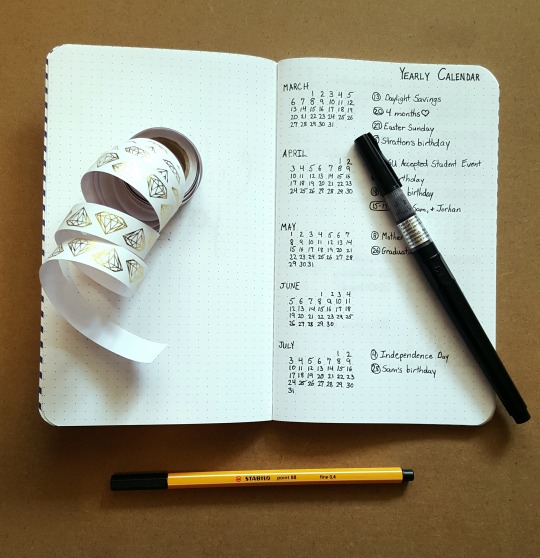 YEARLY CALENDAR
MARCH
1 2 3 4 5
6 7 8 9 10 11 12
13 14 15 16 17 18 19
20 21 22 23 24 25 26
27 28 29 30 31
13 Daylight Savings
20 4 months♡
27 Easter Sunday
Stratton's birthday
APRIL
1 2
3 4 5 6 7 8 9
10 11 12 13 14 15 16
17 18 19 20 21 22 23
24 25 26 27 28 29 30
Accepted Student Event
birthday
Sam, +
MAY
1 2 3 4 5 6 7
8 9 10 11 12 13 14
15 16 17 18 19 20 21
22 23 24 25 26 27 28
29 30 31
8
JUNE
1 2 3 4
5 6 7 8 9 10 11
12 13 14 15 16 17 18
19 20 21 22 23 24 25
26 27 28 29 30
JULY
1 2
3 4 5 6 7 8 9
10 11 12 13 14 15 16
17 18 19 20 21 22 23
24 25 26 27 28 29 30
31
Independence Day
Sam's birthday
STABILO point 88 fine 0,4